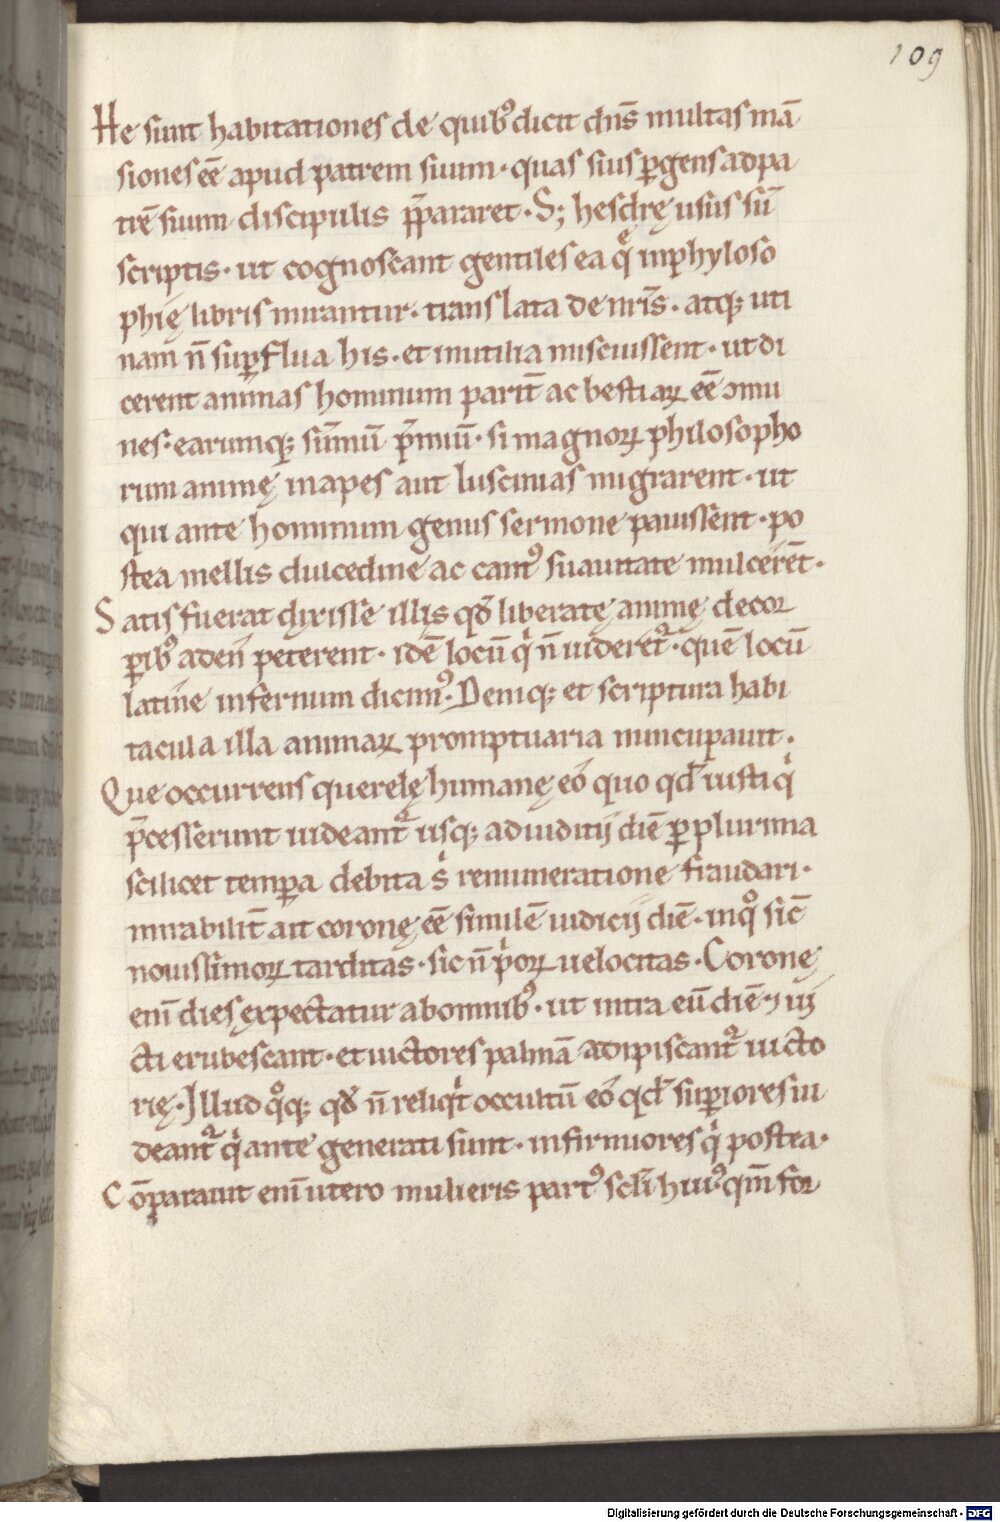 109
He sunt habitationes de quibꝰ dicit dn̅s multas mā
siones eē apud patrem suum · quas suis ꝑgens ad pa
trē suum discipulis p̄pararet · S; hesdrę usus sū
scriptis · ut cognoscant gentiles ea q̄ in phyloso
phię libris mirantur · translata de nr̄is · atq; uti
nam n̄ suꝑflua his · et inutilia miscuissent · ut di
cerent animas hominum parit̄ ac bestiaꝝ eē ↄmu
nes · earumq; sūmū p̄miū · si magnoꝝ philosopho
rum animę in apes aut luscinias migrarent · ut
qui ante hominum genus sermone pauissent · po
stea mellis dulcedine ac cantꝰ suauitate mulcerēt ·
Satis fuerat dyxisse illis qđ liberatę animę de cor
ꝑibꝰ aden̄ peterent · idē locū qͥ n̄ uideret᷑ · quē locū
latine infernum dicimꝰ · Deniq; et scriptura habi
tacula illa animaꝝ promptuaria nuncupauit ·
Que occurrens querelę humanę eō quo qd̄ iusti qͥ
p̄cesserunt uideant᷑ usq; ad iuditij diē ꝑ plurima
scilicet temꝑa debita s̓ remuneratione fraudari ·
mirabilit̄ ait coronę eē similē iudicij diē · in qͦ sic̄
nouissimoꝝ tarditas · sic n̄ pͥoꝝ uelocitas · Coronę
eni̅ dies expectatur ab omnibꝰ · ut intra eū diē ⁊ uĳ
cti erubescant · et uictores palmā adipiscant᷑ uicto
rię · Illud qͦq; qđ n̄ reliqͥt occultū eō qd̄ suꝑiores ui
deant᷑ qͥ ante generati sunt · infirmiores qͥ postea ·
Cōꝑarauit eni̅ utero mulieris partꝰ scl̄i huiꝰ qm̄ for
Digitalisierung gefördert durch die Deutsche Forschungsgemeinschaft - DFG